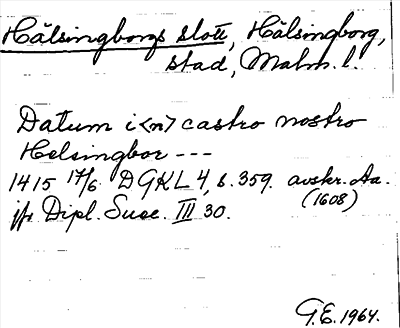 Hälsingborgs slott, Hälsingborg,
stad, Malm. l.
Datum i<n> castro nostro
Helsingbor ---
1415 17/6 DGKL 4, s. 359. avskr. Aa.
(1608)
jfr Dipl. Suec. III 30.
G.E. 1964.